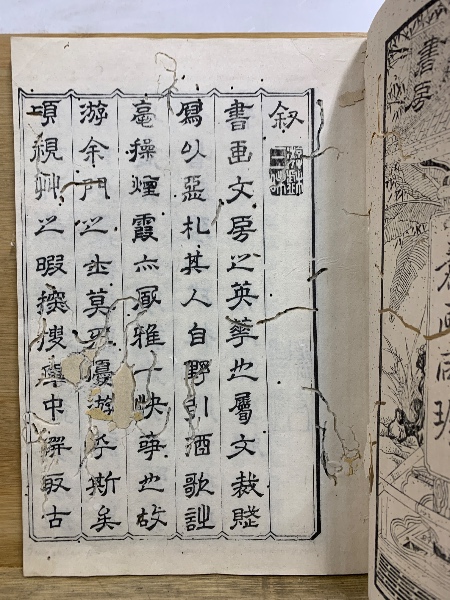 叙
書画文房之英華也屬文裁
寫以惡札其人自野引酒歌詠
毫操煙霞亦風雅一快事也故
游余門之士莫不優游乎斯矣
項視艸之暇探搜中取古
書房